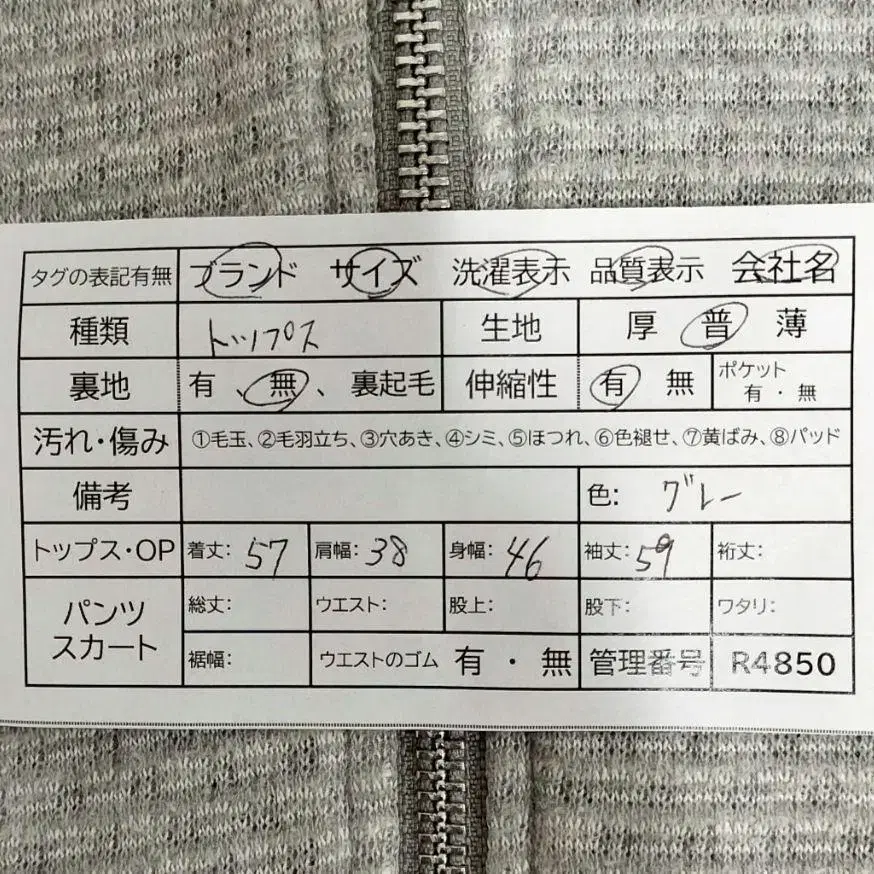 タグの表記有無 ブランド サイズ 洗濯表示 品質表示 会社名
種類 トップス 生地 厚 普 薄
裏地 有 、無 、裏起毛 伸縮性 有 無 ポケット 有・無
汚れ・傷み ①毛玉、②毛羽立ち、③穴あき、④シミ、⑤ほつれ、⑥色褪せ、⑦黄ばみ、⑧パッド
備考 色: グレー
トップス・OP 着丈: 57 肩幅: 38 身幅: 46 袖丈: 59 裄丈:
パンツ スカート 総丈: ウエスト: 股上: 股下: ワタリ:
裾幅: ウエストのゴム 有・無 管理番号 R4850